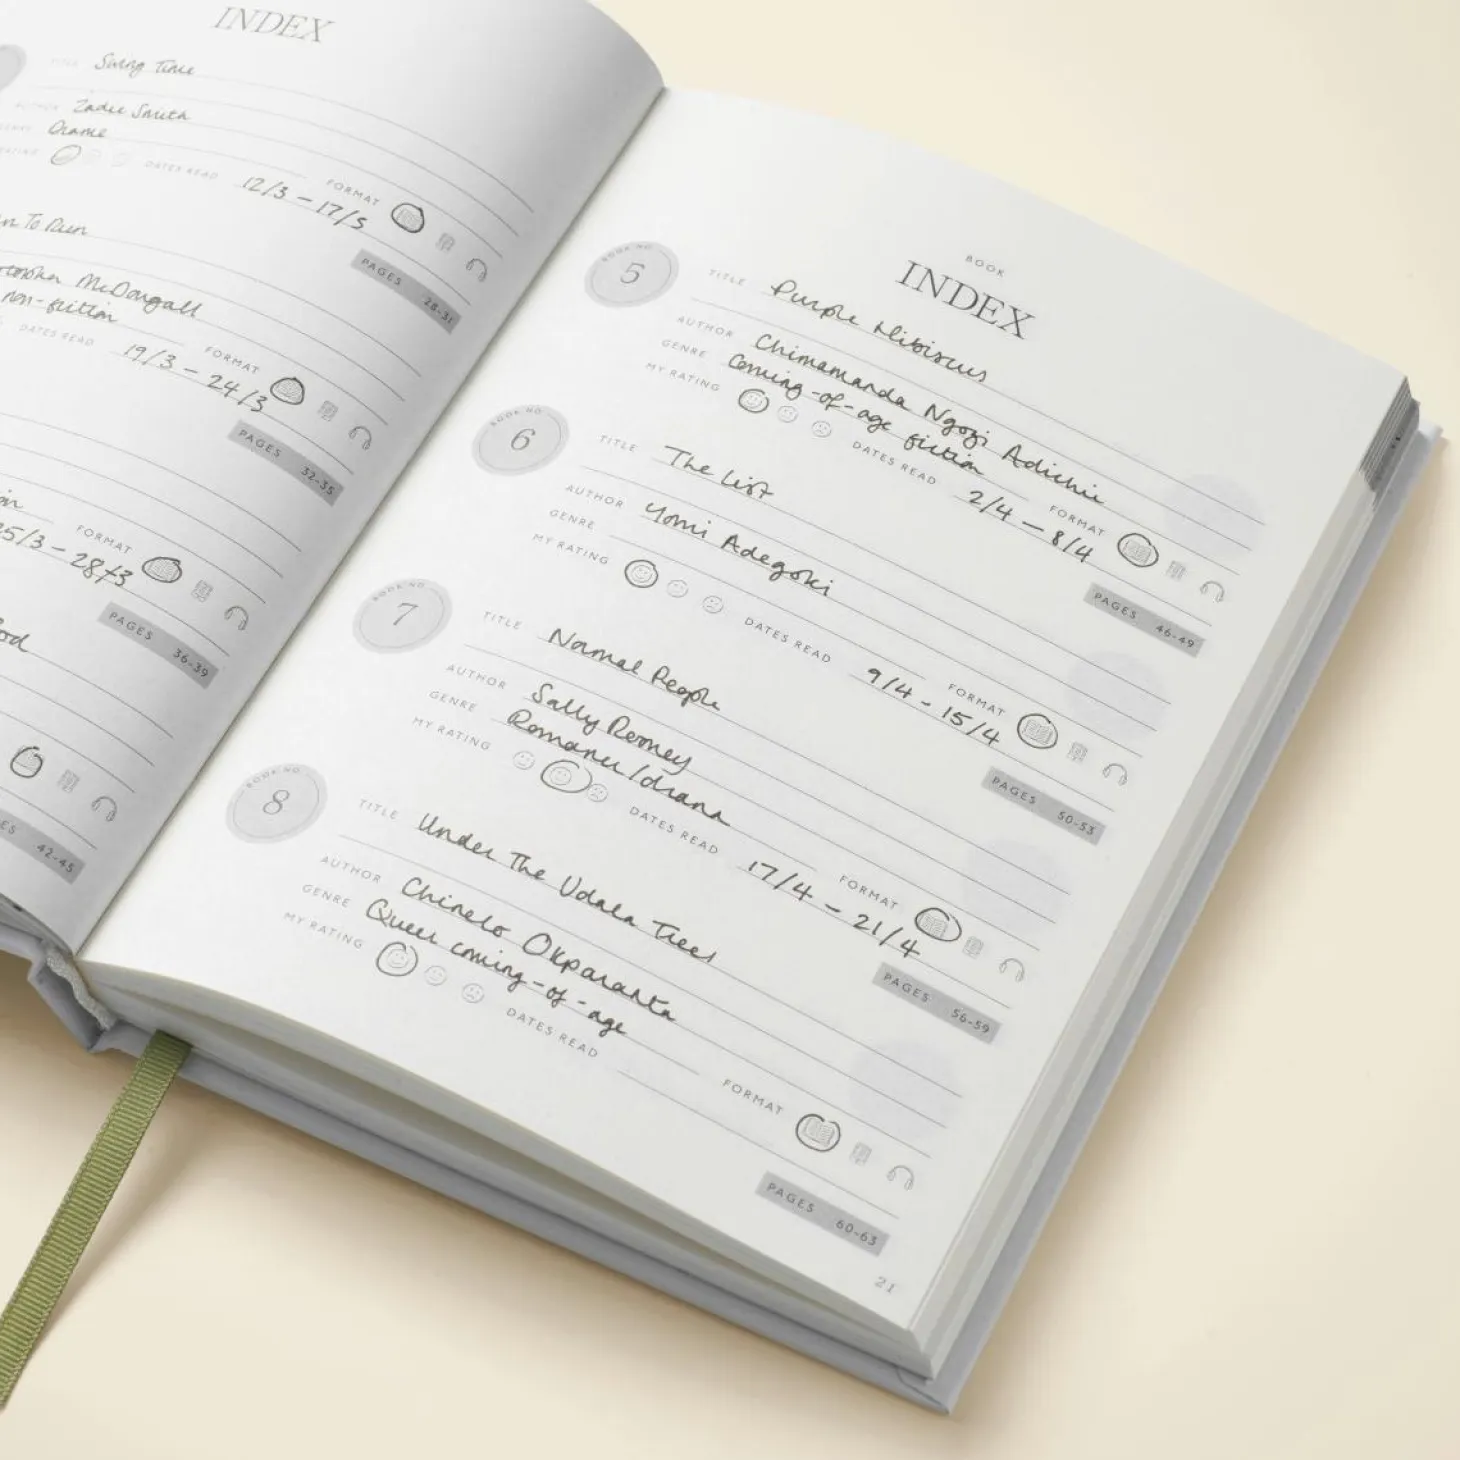 INDEX
TITLE Swing Time
AUTHOR Zadie Smith
Drama
RATING DATES READ 12/3 – 17/5 FORMAT
PAGES 28-31
To Run
McDougall
non-fiction
DATES READ 19/3 – 24/3 FORMAT
PAGES 32-35
25/3 – 28/3 FORMAT
PAGES 36-39
PAGES 42-45
BOOK
INDEX
BOOK NO.
5
TITLE Purple Hibiscus
AUTHOR Chimamanda Ngozi Adichie
GENRE Coming-of-age fiction
MY RATING DATES READ 2/4 – 8/4 FORMAT
PAGES 46-49
BOOK NO.
6
TITLE The List
AUTHOR Yomi Adegoki
GENRE
MY RATING DATES READ 9/4 - 15/4 FORMAT
PAGES 50-53
BOOK NO.
7
TITLE Normal People
AUTHOR Sally Rooney
GENRE Romance/drama
MY RATING DATES READ 17/4 – 21/4 FORMAT
PAGES 56-59
BOOK NO.
8
TITLE Under The Udala Trees
AUTHOR Chinelo Okparanta
GENRE Queer coming-of-age
MY RATING DATES READ FORMAT
PAGES 60-63
21